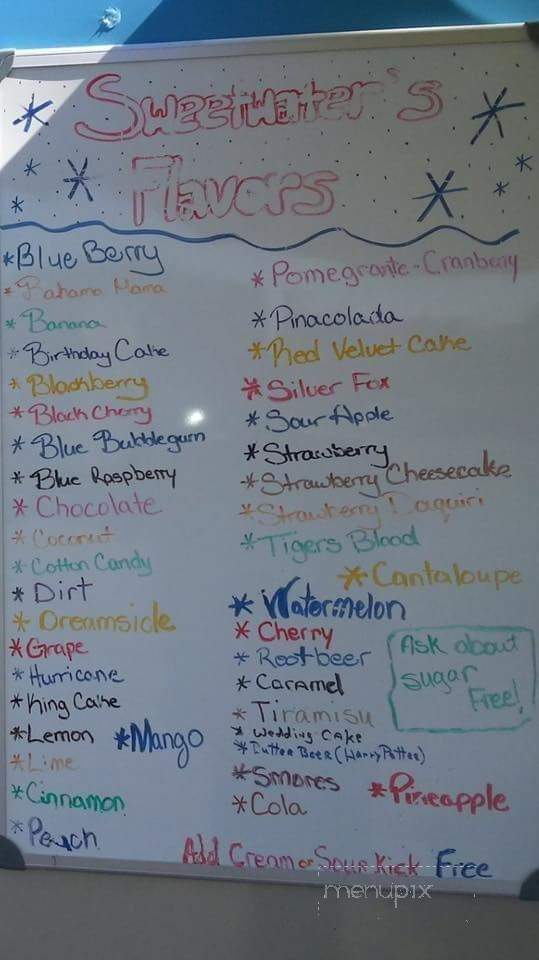 Sweetwater's
Flavors
*Blue Berry
*Bahama Mama
*Banana
*Birthday Cake
*Blackberry
*Black Cherry
*Blue Bubblegum
*Blue Raspberry
*Chocolate
*Coconut
*Cotton Candy
*Dirt
*Dreamsicle
*Grape
*Hurricane
*King Cake
*Lemon *Mango
*Lime
*Cinnamon
*Peach
*Pomegrante-Cranberry
*Pinacolada
*Red Velvet Cake
*Silver Fox
*Sour Apple
*Strawberry
*Strawberry Cheesecake
*Strawberry Daquiri
*Tigers Blood
*Cantaloupe
*Watermelon
*Cherry
*Rootbeer
*Caramel
*Tiramisu
*Wedding Cake
*Butter Beer (Harry Potter)
*Smores
*Pineapple
*Cola
Ask about
sugar
Free!
Add Cream or Sour Kick Free
menupix